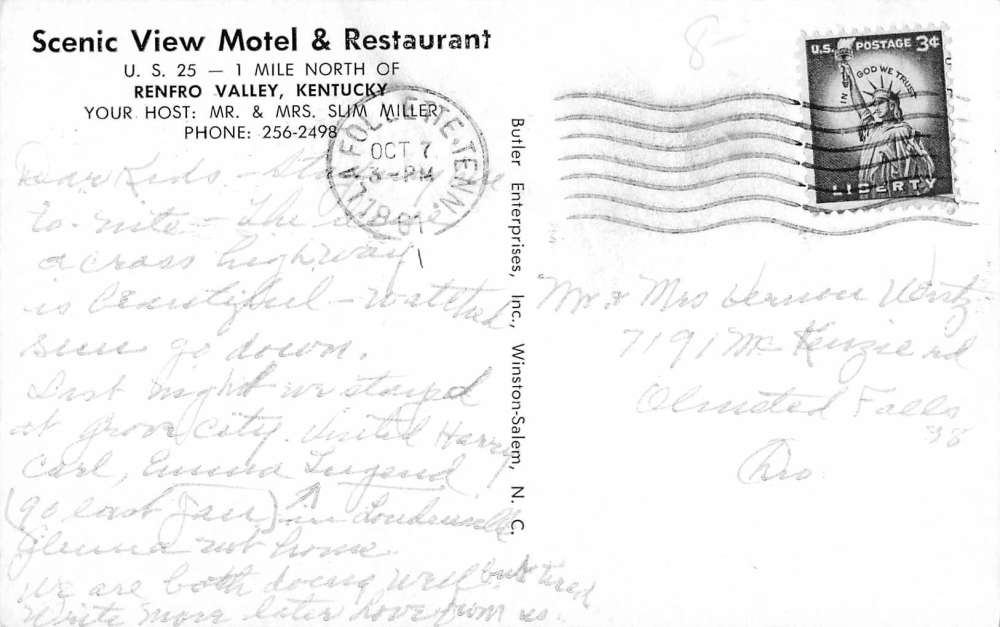 Scenic View Motel & Restaurant
U. S. 25 — 1 MILE NORTH OF
RENFRO VALLEY, KENTUCKY
YOUR HOST: MR. & MRS. SLIM MILLER
PHONE: 256-2498
LA FOLLETTE, TENN.
OCT 7
3-PM
1961
U.S. POSTAGE 3¢
IN GOD WE TRUST
LIBERTY
8-
Butler Enterprises, Inc., Winston-Salem, N. C.
Dear Kids - Staying here
to-nite - The
across highway
is beautiful - watched
sun go down.
Last night we stayed
at Grove City. Visited Harry
Carl, Emma
(90 last Jan) in Loudonville
Glenna not home.
We are both doing well but tired
Write more later Love from us.
Mr & Mrs Vernon
7191 McKenzie rd
Olmsted Falls
38
Ohio